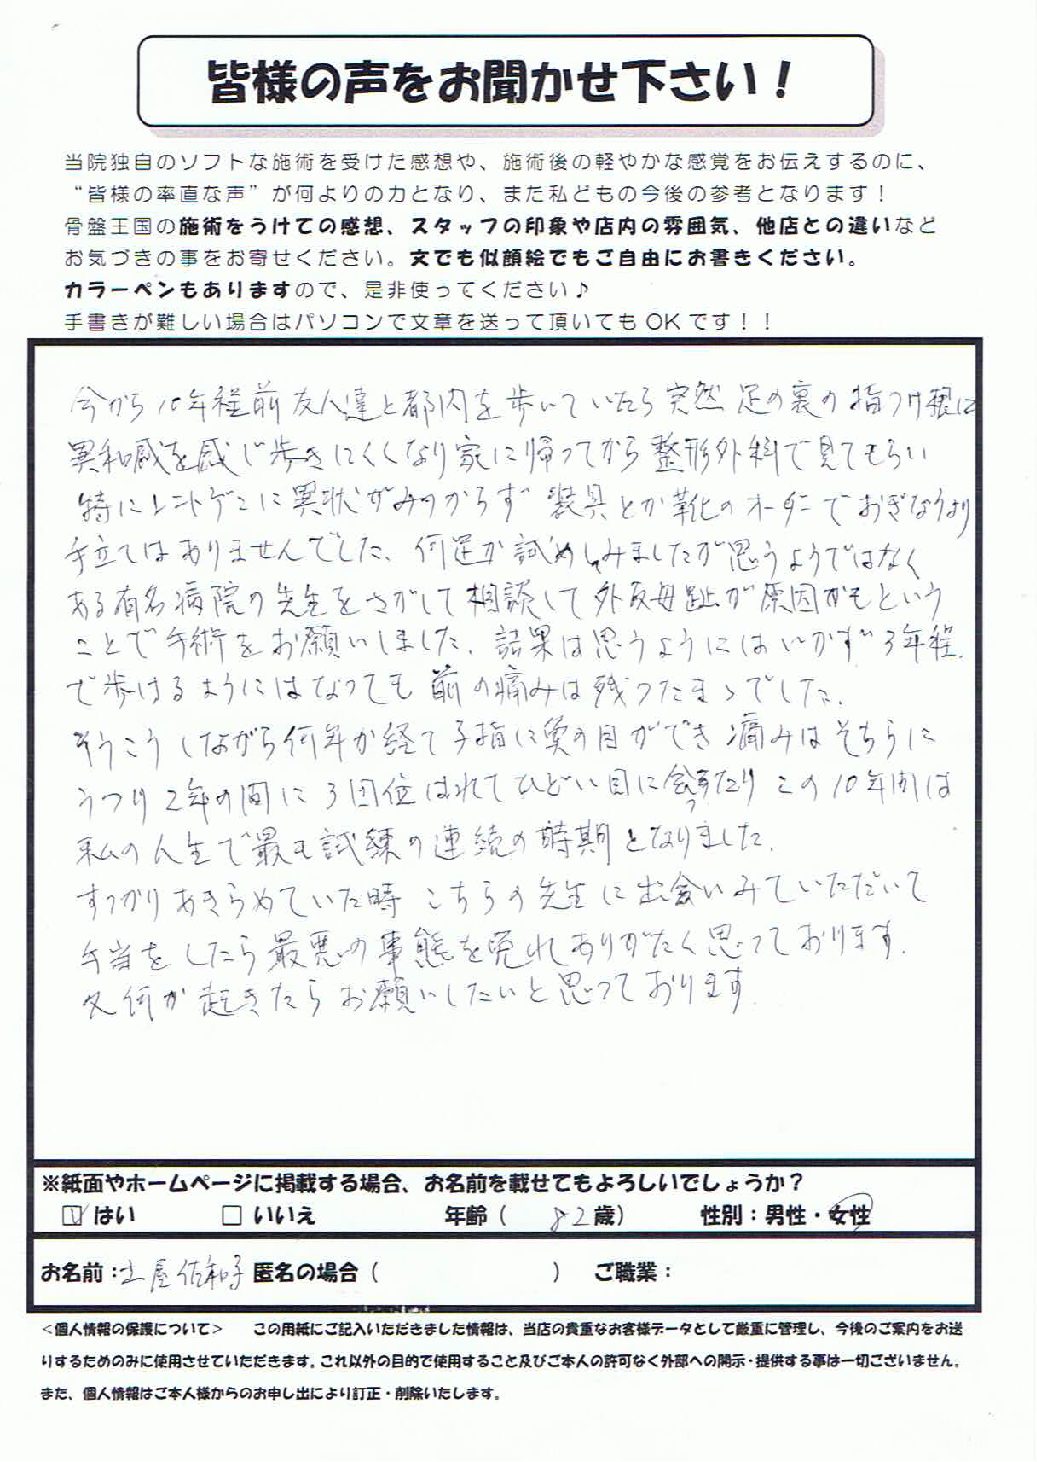 皆様の声をお聞かせ下さい!
当院独自のソフトな施術を受けた感想や、施術後の軽やかな感覚をお伝えするのに、
“皆様の率直な声”が何よりの力となり、また私どもの今後の参考となります!
骨盤王国の施術をうけての感想、スタッフの印象や店内の雰囲気、他店との違いなど
お気づきの事をお寄せください。文でも似顔絵でもご自由にお書きください。
カラーペンもありますので、是非使ってください♪
手書きが難しい場合はパソコンで文章を送って頂いてもOKです!!
今から10年程前友人達と都内を歩いていたら突然足の裏の指つけ根に
異和感を感じ歩きにくくなり家に帰ってから整形外科で見てもらい
特にレントゲンに異状がみつからず装具とか靴のオーダーでおぎなうより
手立てはありませんでした、何足か試めしみましたが思うようではなく
ある有名病院の先生をさがして相談して外反母趾が原因かもという
ことで手術をお願いしました、結果は思うようにはいかず3年程、
で歩けるようにはなっても前の痛みは残ったまゝでした、
そうこうしながら何年か経て子指に魚の目ができ痛みはそちらに
うつり2年の間に3回位はれてひどい目に会ったりこの10年間は
私の人生で最も試練の連続の時期となりました、
すっかりあきらめていた時こちらの先生に出会いみていただいて
手当をしたら最悪の事態を免れありがたく思っております、
又何か起きたらお願いしたいと思っております、
※紙面やホームページに掲載する場合、お名前を載せてもよろしいでしょうか?
☑はい □いいえ 年齢( 82歳) 性別:男性・女性
お名前:土屋佐和子 匿名の場合( ) ご職業:
<個人情報の保護について> この用紙にご記入いただきました情報は、当店の貴重なお客様データとして厳重に管理し、今後のご案内をお送
りするためのみに使用させていただきます。これ以外の目的で使用すること及びご本人の許可なく外部への開示・提供する事は一切ございません。
また、個人情報はご本人様からのお申し出により訂正・削除いたします。